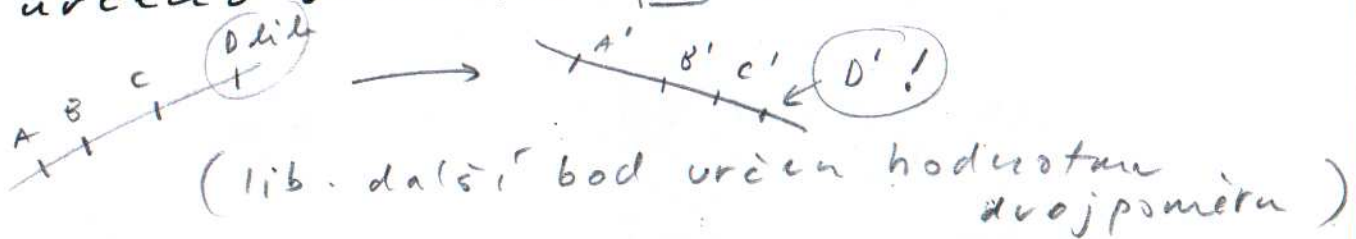 určeno
D lib
A B C
A' B' C' D' !
(lib. další bod určen hodnotou
dvojpoměru)